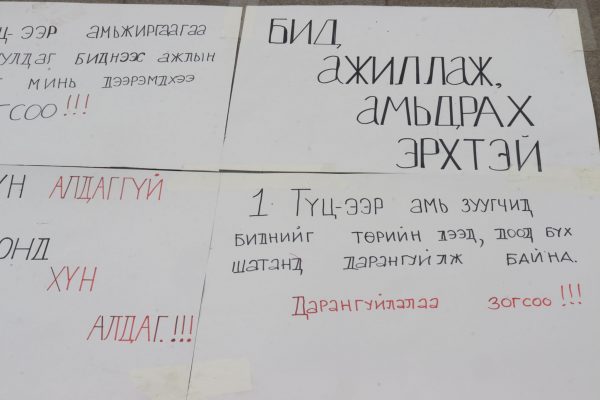 Ц-ЭЭР АМЬЖИРГААГАА
УУЛДАГ БИДНЭЭС АЖЛЫН
МИНЬ ДЭЭРЭМДХЭЭ
ОГСОО!!!
БИД,
АЖИЛЛАЖ,
АМЬДРАХ
ЭРХТЭЙ
ҮН АЛДАГГҮЙ
ОНД
ХҮН
АЛДАГ.!!!
1 ТҮЦ-ЭЭР АМЬ ЗУУГЧИД
БИДНИЙГ ТӨРИЙН ДЭЭД, ДООД БҮХ
ШАТАНД ДАРАНГУЙЛЖ БАЙНА.
ДАРАНГУЙЛАЛАА ЗОГСОО!!!